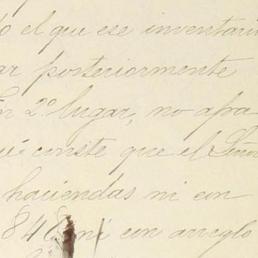 o el que ese inventari
ar posteriormente
n 2º lugar, no apa
ue conste que el Seño
haciendas ni con
848 ni con arreglo